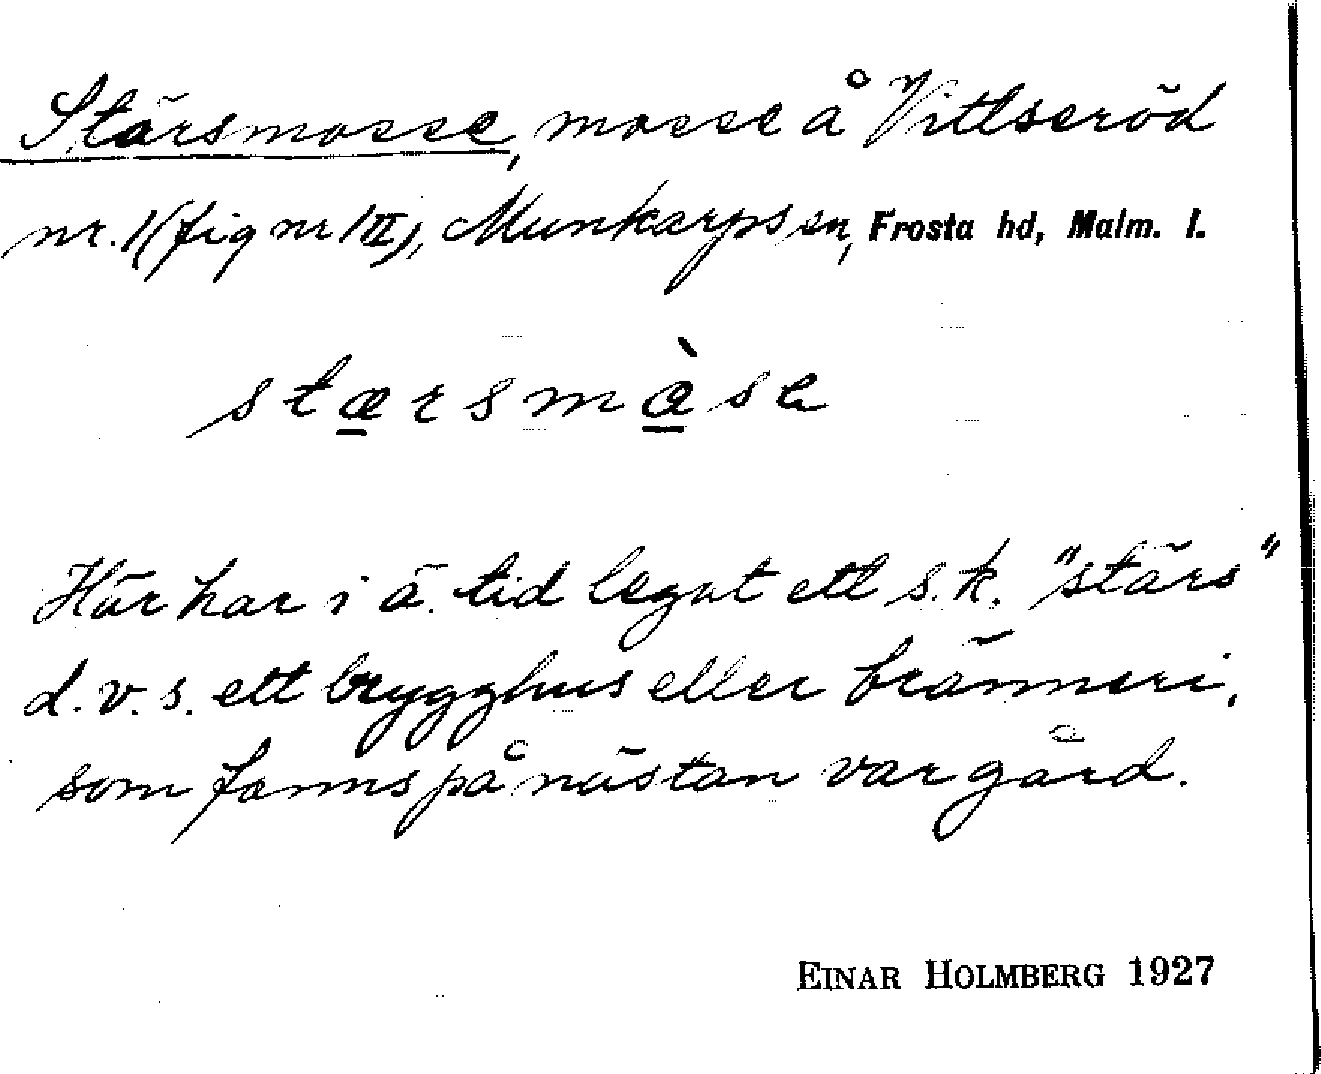 Stärsmosse, mosse å Vitlseröd
nr. 1 (fig nr 1 II), Munkarps sn, Frosta hd, Malm. l.
stærsmàse
Här har i ä. tid legat ett s.k. "stärs"
d.v.s. ett brygghus eller bränneri,
som fanns på nästan var gård.
EINAR HOLMBERG 1927